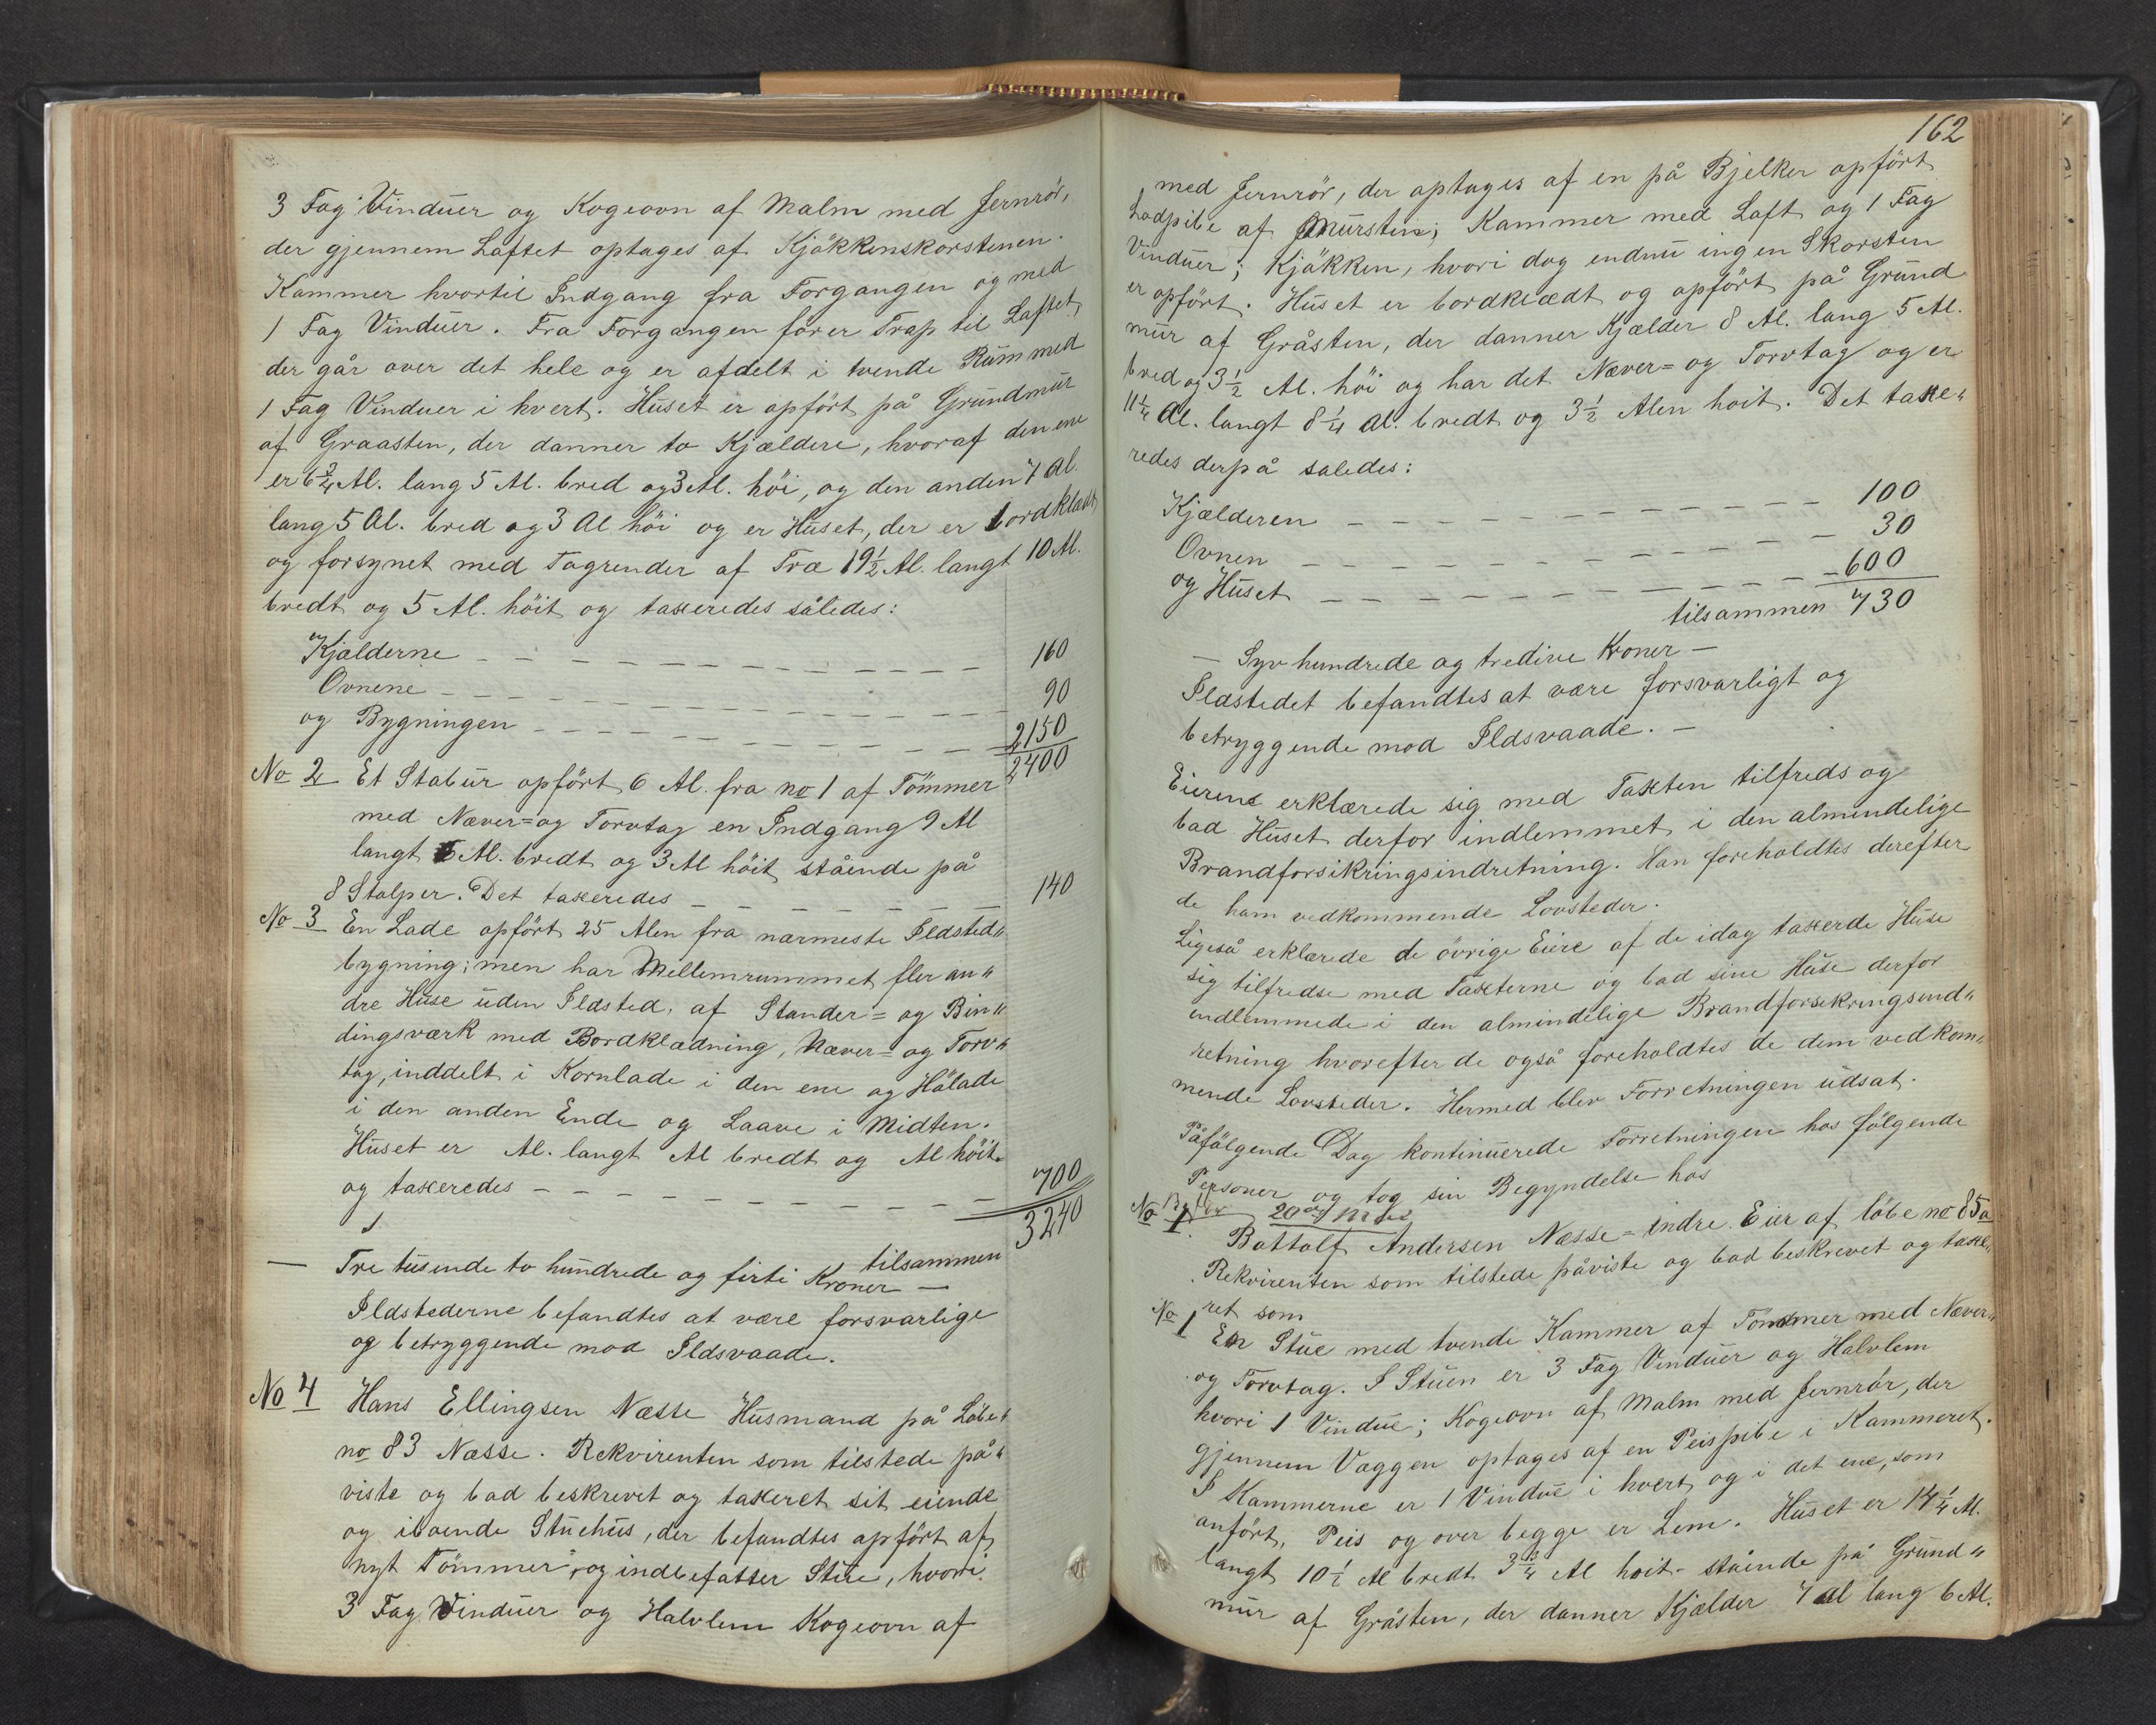 3 Fag Vinduer og Kogeovn af Malm med Jernrör,
der gjennem Laftet optages af Kjökkenskorstenen.
Kammer hvortil Indgang fra Forgangen og med
1 Fag Vinduer. Fra Forgangen förer Trap til Laftet,
der går over det hele og er afdelt i tvende Rum med
1 Fag Vinduer i hvert. Huset er opfört på Grundmur
af Graasten, der danner to Kjældere, hvoraf den ene
er 6 2/4 Al. lang 5 Al. bred og 3 Al. höi, og den anden 7 Al.
lang 5 Al. bred og 3 Al höi og er Huset, der er bordklædt
og forsynet med Tagrender af Træ 19 1/2 Al. langt 10 Al.
bredt og 5 Al. höit og taxeredes således:
Kjælderne 160
Ovnene 90
og Bygningen 2150
2400
No 2 Et Stabur opfört 6 Al. fra no 1 af Tömmer
med Næver= og Torvtag en Indgang 9 Al
langt 6 Al. bredt og 3 Al höit, stående på
8 Stolper. Det taxeredes 140
No 3 En Lade opfört 25 Alen fra nærmeste Ildsted„
bygning; men har Mellemrummet fler an„
dre Huse uden Ildsted, af Stander= og Bin„
dingsværk med Bordklædning, Næver= og Torv„
tag, inddelt i Kornlade i den ene og Hölade
i den anden Ende og Laave i Midten.
Huset er Al. langt Al bredt og Al höit
og taxeredes 700
tilsammen 3240
— Tre tusinde to hundrede og firti Kroner —
Ildstederne befandtes at være forsvarlige
og betryggende mod Ildsvaade.
No 4 Hans Ellingsen Næsse Husmand på Löbe„
no 83 Næsse. Rekvirenten som tilstede på„
viste og bad beskrevet og taxeret sit eiende
og iboende Stuehus, der befandtes opfört af
nyt Tömmer, og indbefatter Stue, hvori
3 Fag Vinduer og Halvlem Kogeovn af
162
med Jernrör, der optages af en på Bjelker opfört
Lodpibe af Mursten; Kammer med Laft og 1 Fag
Vinduer; Kjökken, hvori dog endnu ingen Skorsten
er opfört. Huset er bordklædt og opfört på Grund
mur af Gråsten, der danner Kjælder 8 Al. lang 5 Al.
bred og 3 1/2 Al. höi og har det Næver= og Torvtag og er
11 1/4 Al. langt 8 1/4 Al. bredt og 3 1/2 Alen hoit. Det taxe„
redes derpå saledes:
Kjælderen 100
Ovnen 30
og Huset 600
tilsammen 730
— Syv hundrede og tredive Kroner —
Ildstedet befandtes at være forsvarligt og
betryggende mod Ildsvaade. —
Eierene erklærede sig med Taxten tilfreds og
bad Huset derfor indlemmet i den almindelige
Brandforsikringsindretning. Han foreholdtes derefter
de ham vedkommende Lovsteder.
Ligeså erklærede de övrige Eiere af de idag taxerde Huse
sig tilfredse med Taxterne og bad sine Huse derfor
indlemmede i den almindelige Brandforsikringsind„
retning hvorefter de også foreholdtes de dem vedkom„
mende Lovsteder. Hermed blev Forretningen udsat.
Påfölgende Dag kontinuerede Forretningen hos fölgende
Personer og tog sin Begyndelse hos
No 1. Bottolf Andersen Næsse=indre. Eier af löbe no 85a
Rekvirenten som tilstede påviste og bad beskrevet og taxe„
ret som
No 1 En Stue med tvende Kammer af Tömmer med Næver„
og Torvtag. I Stuen er 3 Fag Vinduer og Halvlem
hvori 1 Vindue; Kogeovn af Malm med Jernrör, der
gjennem Væggen optages af en Peispibe i Kammeret.
I Kammerne er 1 Vindue i hvert, og i det ene, som
anfört, Peis og over begge er Lem. Huset er 14 1/4 Al.
langt 10 1/2 Al bredt 3 3/4 Al hoit stående på Grund„
mur af Gråsten, der danner Kjælder 7 Al lang 6 Al.